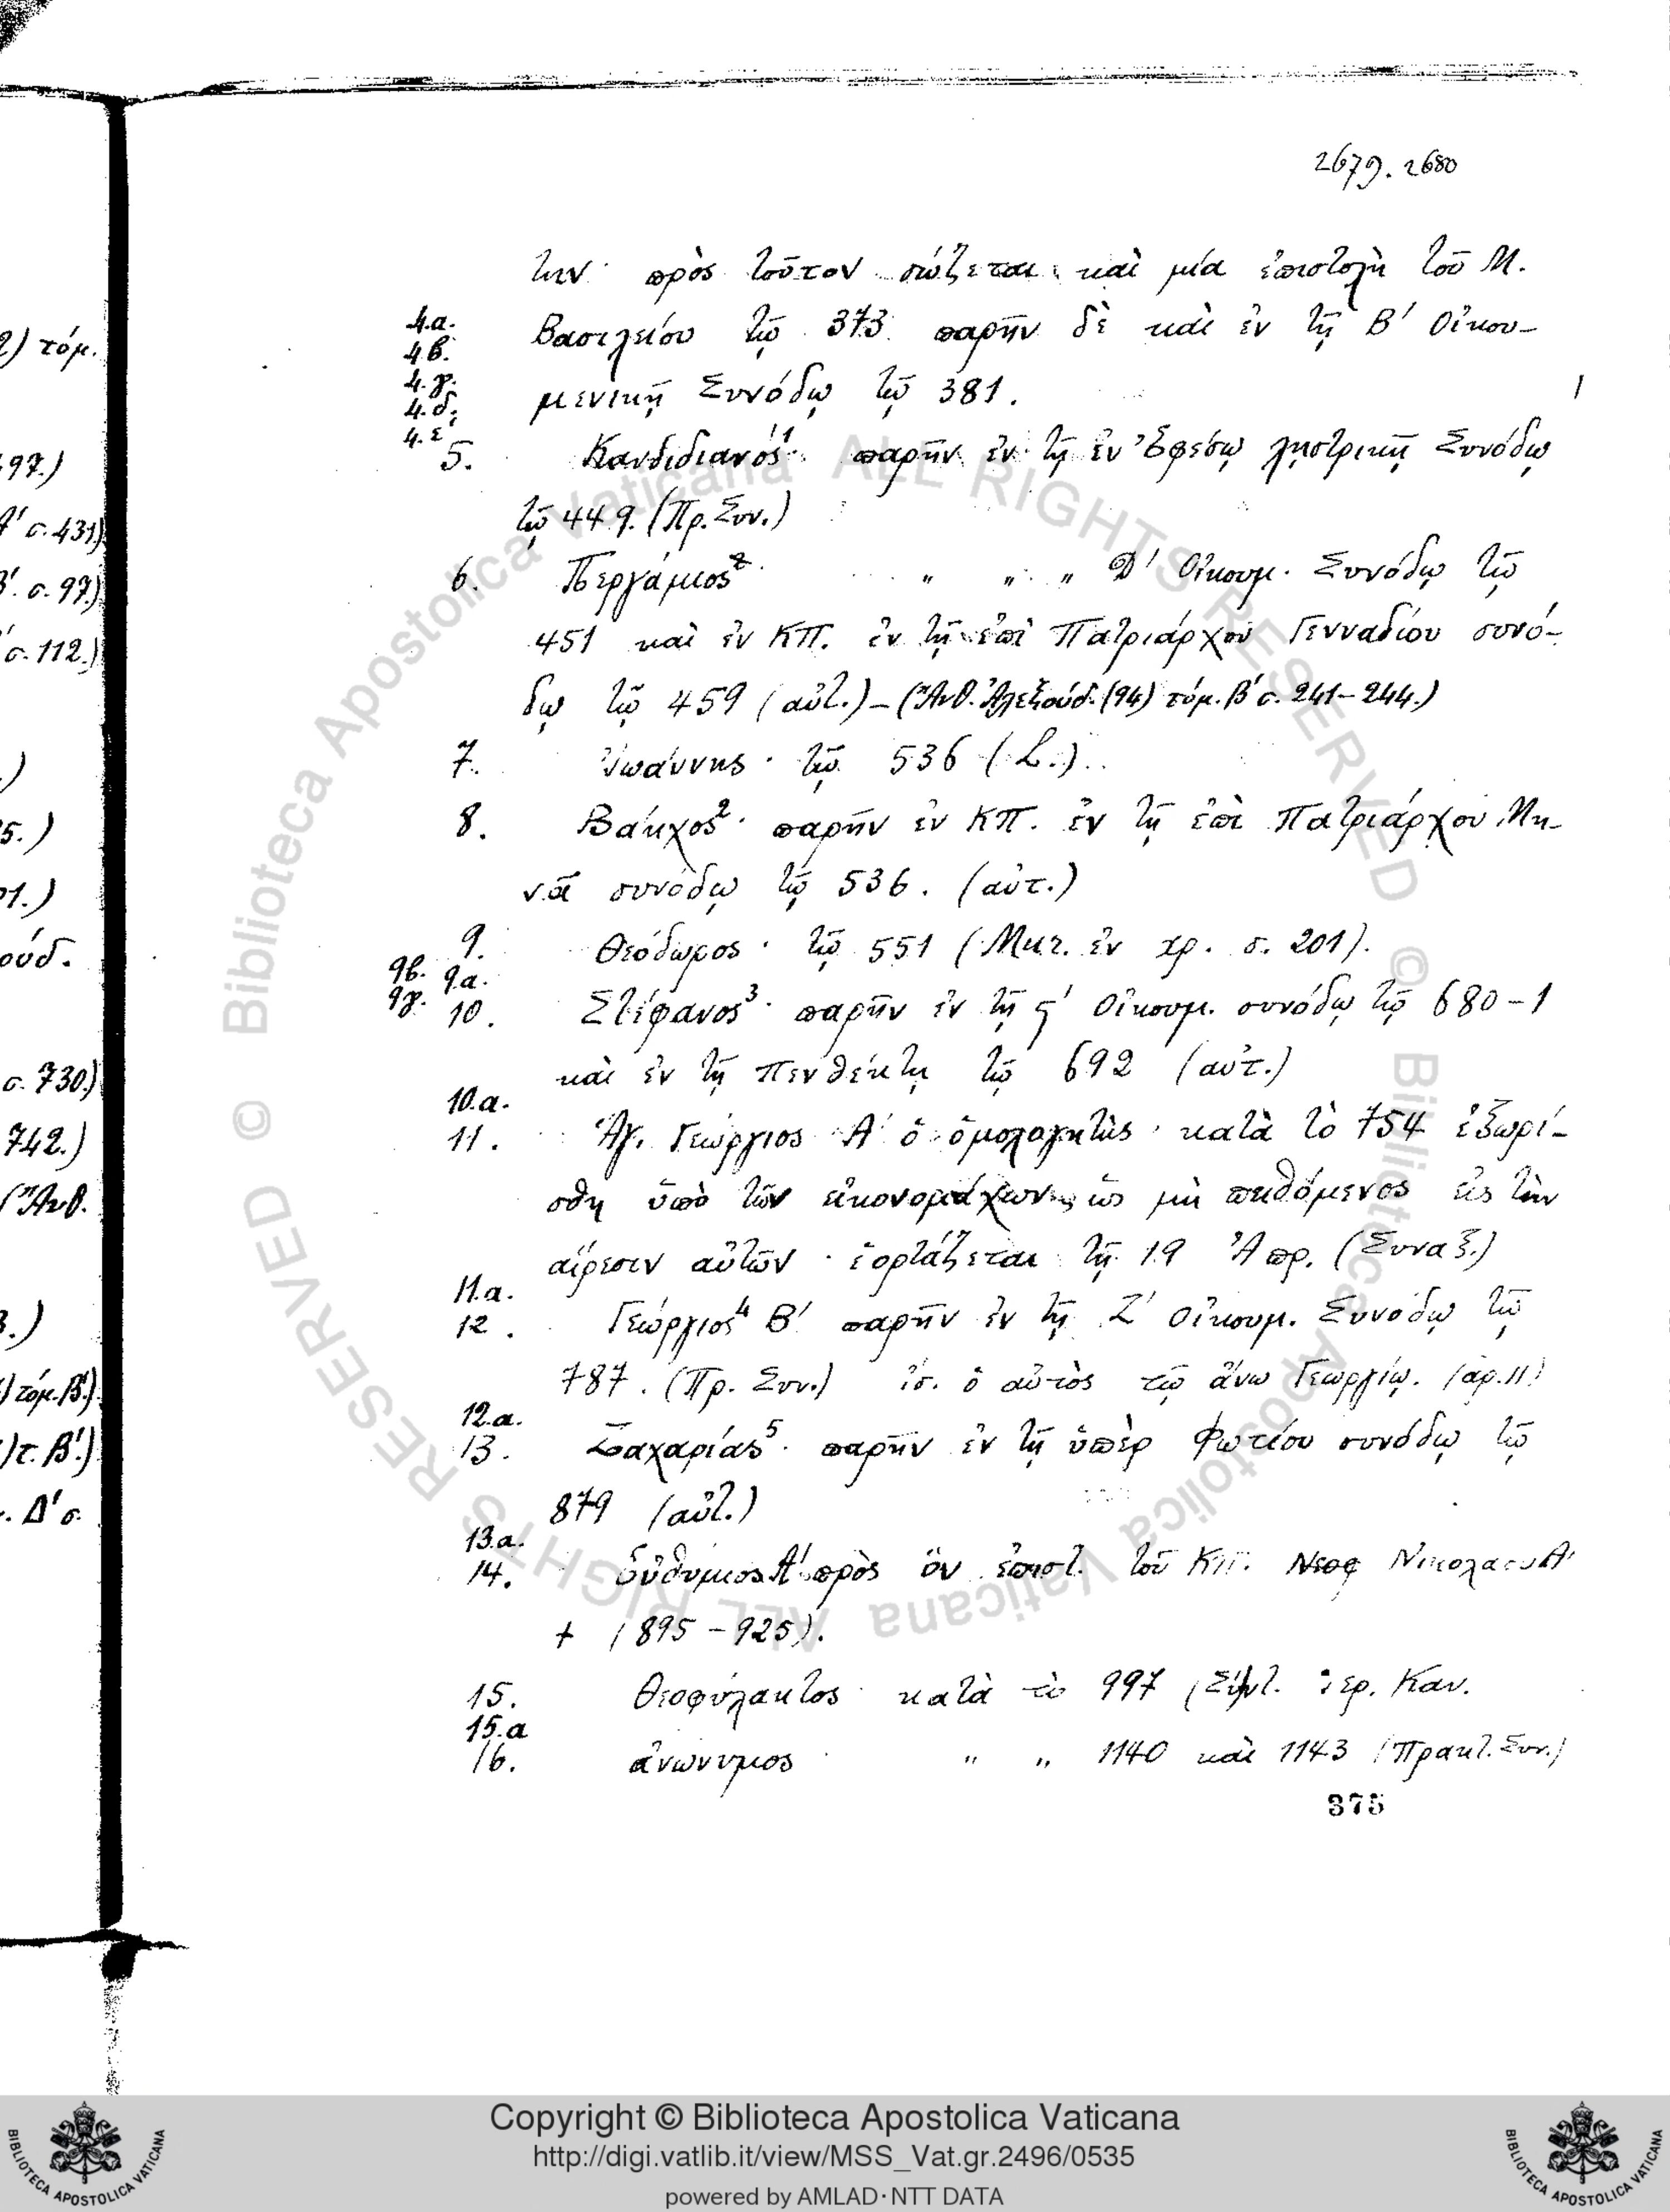 2679. 2680
2) τόμ.
97.)
Α' σ. 431)
Β'. σ. 97.)
σ. 112.)
)
5.)
01.)
ούδ.
σ. 730.)
742.)
(Ἀνθ.
3.)
) τόμ. Β'.)
) τ. Β'.)
. Δ' σ.
την· πρὸς τοῦτον σώζεται καὶ μία ἐπιστολὴ τοῦ Μ.
4.α.
Βασιλείου τῷ 373. παρῆν δὲ καὶ ἐν τῇ Β' Οἰκου-
4.β.
4.γ.
μενικῇ Συνόδῳ τῷ 381.
4.δ.
4.ε'
5. Κανδιδιανός¹· παρῆν ἐν τῇ ἐν Ἐφέσῳ λῃστρικῇ Συνόδῳ
τῷ 449. (Πρ. Συν.)
6. Περγάμιος²· " " " Δ' Οἰκουμ. Συνόδῳ τῷ
451 καὶ ἐν ΚΠ. ἐν τῇ ἐπὶ Πατριάρχου Γενναδίου συνό-
δῳ τῷ 459 (αὐτ.) – (Ἀνθ. Ἀλεξούδ. (94) τόμ. Β' σ. 241–244.)
7. Ἰωάννης· τῷ 536 (L.).
8. Βάκχος²· παρῆν ἐν ΚΠ. ἐν τῇ ἐπὶ Πατριάρχου Μη-
νᾶ συνόδῳ τῷ 536. (αὐτ.)
9. Θεόδωρος· τῷ 551 (Μητ. ἐν χρ. σ. 201).
9β. 9.α.
9γ.
10. Στέφανος³· παρῆν ἐν τῇ ϛ' Οἰκουμ. συνόδῳ τῷ 680–1
καὶ ἐν τῇ Πενθέκτῃ τῷ 692 (αὐτ.)
10.α.
11. Ἅγ. Γεώργιος Α' ὁ ὁμολογητὴς· κατὰ τὸ 754 ἐξωρί-
σθη ὑπὸ τῶν εἰκονομάχων, ὡς μὴ πειθόμενος εἰς τὴν
αἵρεσιν αὐτῶν· ἑορτάζεται τῇ 19 Ἀπρ. (Συναξ.)
11.α.
12. Γεώργιος⁴ Β' παρῆν ἐν τῇ Ζ' Οἰκουμ. Συνόδῳ τῷ
787. (Πρ. Συν.) ἴσ. ὁ αὐτὸς τῷ ἄνω Γεωργίῳ. (ἀρ. 11)
12.α.
13. Ζαχαρίας⁵· παρῆν ἐν τῇ ὑπὲρ Φωτίου συνόδῳ τῷ
879 (αὐτ.)
13.α.
14. Εὐθύμιος Α' πρὸς ὃν ἐπιστ. τοῦ ΚΠ. Νικολάου Α'
+ (895–925).
15. Θεοφύλακτος· κατὰ τὸ 997 (Σύντ. ἱερ. Καν.
15.α
16. ἀνώνυμος " " 1140 καὶ 1143 (Πρακτ. Συν.)
375
Copyright © Biblioteca Apostolica Vaticana
http://digi.vatlib.it/view/MSS_Vat.gr.2496/0535
powered by AMLAD·NTT DATA
BIBLIOTECA APOSTOLICA VATICANA
BIBLIOTECA APOSTOLICA VATICANA
© Biblioteca Apostolica Vaticana ALL RIGHTS RESERVED © Biblioteca Apostolica Vaticana ALL RIGHTS RESERVED